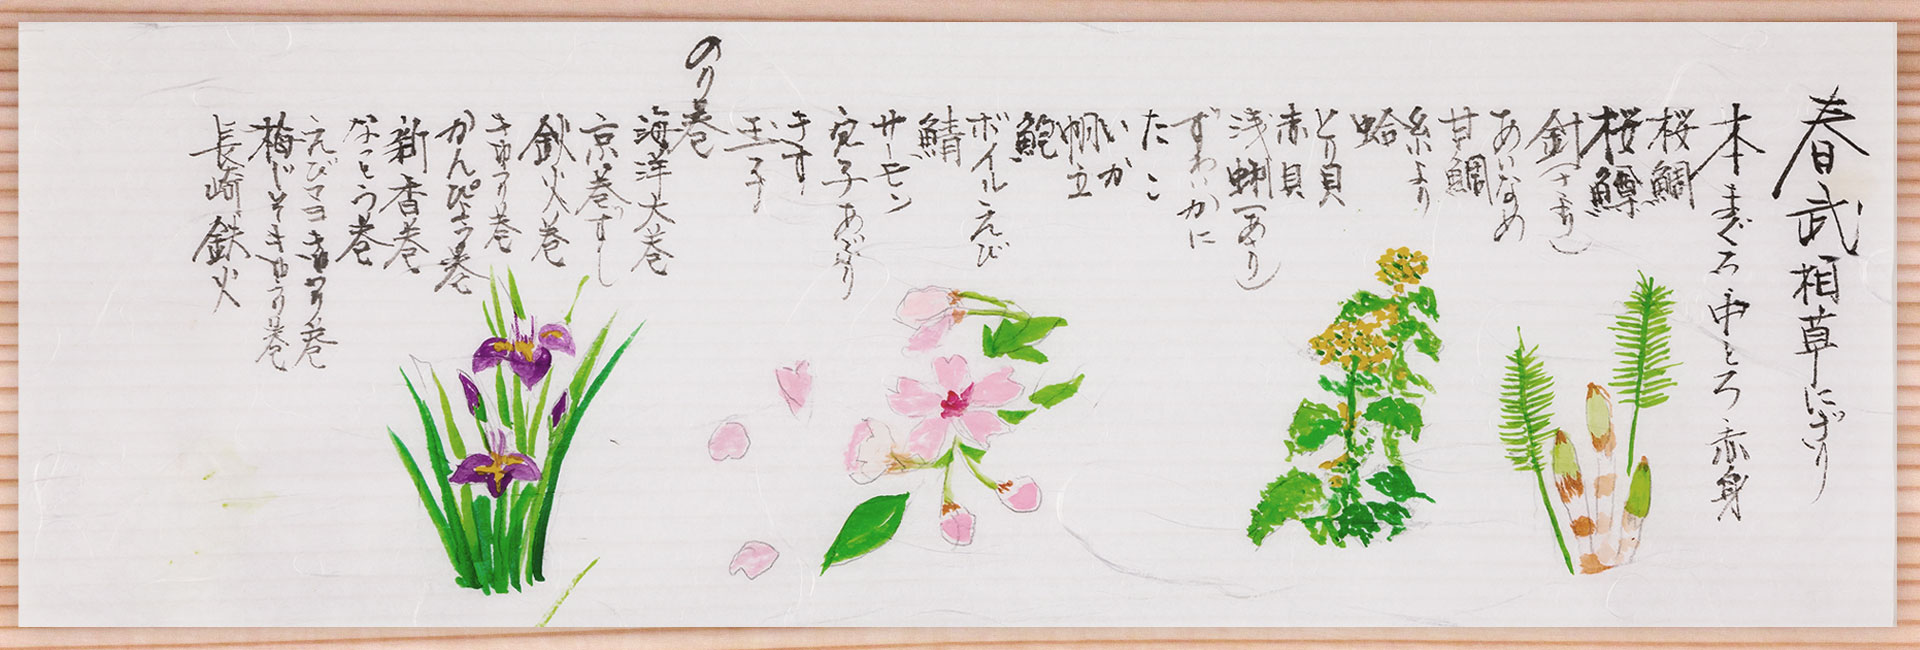 春 武相草にぎり
本まぐろ 中とろ 赤身
桜鯛
桜鱒
針(さより)
あいなめ
甘鯛
糸より
蛤
とり貝
赤貝
浅蜊(あさり)
ずわいかに
たこ
いか
帆立
鮑
ボイルえび
鯖
サーモン
穴子あぶり
きす
玉子
のり巻
海洋大巻
京巻ずし
鉄火巻
きゅうり巻
かんぴょう巻
新香巻
なっとう巻
えびマヨきゅうり巻
梅じそきゅうり巻
長崎鉄火